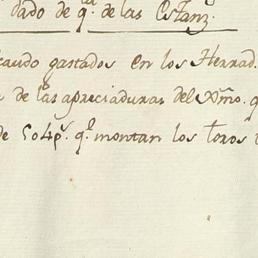 dado de q.ᵗᵃ de las Estanz.
caudo gastados en los Herrad.
de las apreciaduras del Xmo. q
de 504p.ˢ q.ᵉ montan los toros